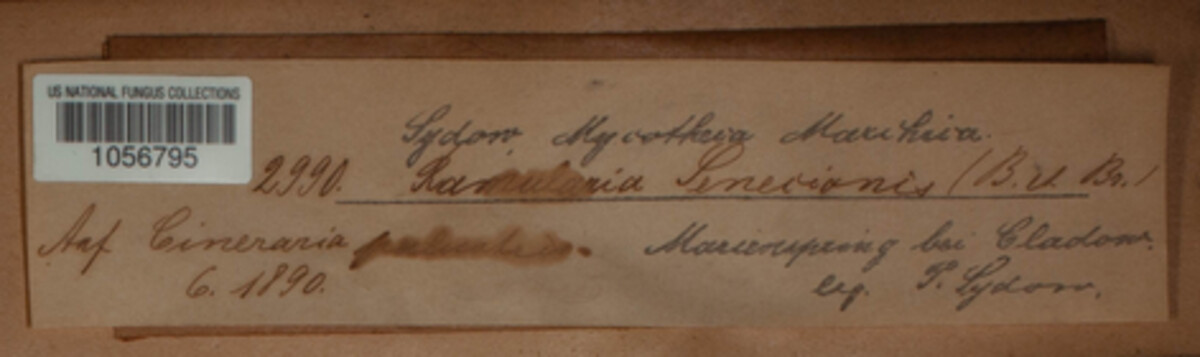 US NATIONAL FUNGUS COLLECTIONS
1056795
Sydow, Mycotheca Marchica.
2990. Ramularia Senecionis (B. u. Br.)
Auf Cineraria palustris. Marienspring bei Cladow.
6. 1890. leg. P. Sydow.